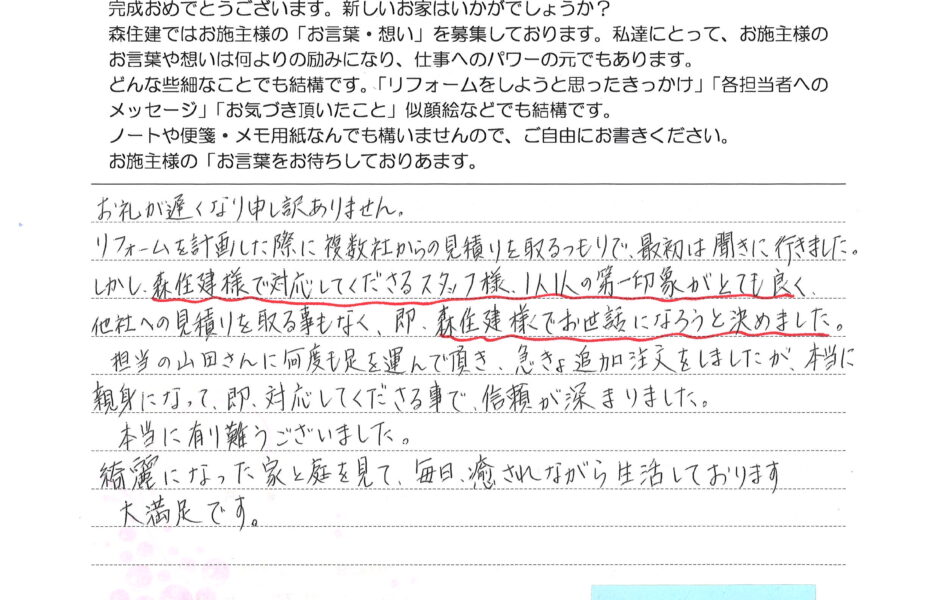 完成おめでとうございます。新しいお家はいかがでしょうか？
森住建ではお施主様の「お言葉・想い」を募集しております。私達にとって、お施主様の
お言葉や想いは何よりの励みになり、仕事へのパワーの元でもあります。
どんな些細なことでも結構です。「リフォームをしようと思ったきっかけ」「各担当者への
メッセージ」「お気づき頂いたこと」似顔絵などでも結構です。
ノートや便箋・メモ用紙なんでも構いませんので、ご自由にお書きください。
お施主様の「お言葉をお待ちしておりあます。
お礼が遅くなり申し訳ありません。
リフォームを計画した際に複数社からの見積りを取るつもりで、最初は聞きに行きました。
しかし、森住建様で対応してくださるスタッフ様、1人1人の第一印象がとても良く、
他社への見積りを取る事もなく、即、森住建様でお世話になろうと決めました。
担当の山田さんに何度も足を運んで頂き、急きょ追加注文をしましたが、本当に
親身になって、即、対応してくださる事で、信頼が深まりました。
本当に有り難うございました。
綺麗になった家と庭を見て、毎日、癒されながら生活しております
大満足です。